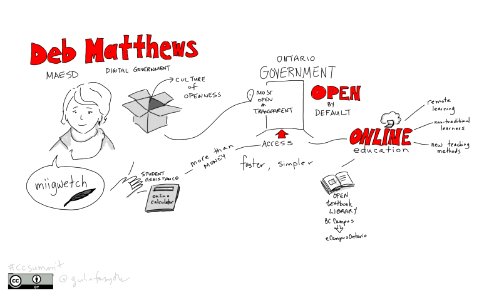 Deb Matthews
MAESD
DIGITAL GOVERNMENT
CULTURE
OF
OPENNESS
miigwetch
ONTARIO
GOVERNMENT
MOST
OPEN &
TRANSPARENT
OPEN
BY
DEFAULT
ACCESS
more than
MONEY
faster, simpler
STUDENT
ASSISTANCE
online
calculator
ONLINE
education
remote
learning
non-traditional
learners
new teaching
methods
OPEN
textbook
LIBRARY
BCcampus
eCampusOntario
cc
BY